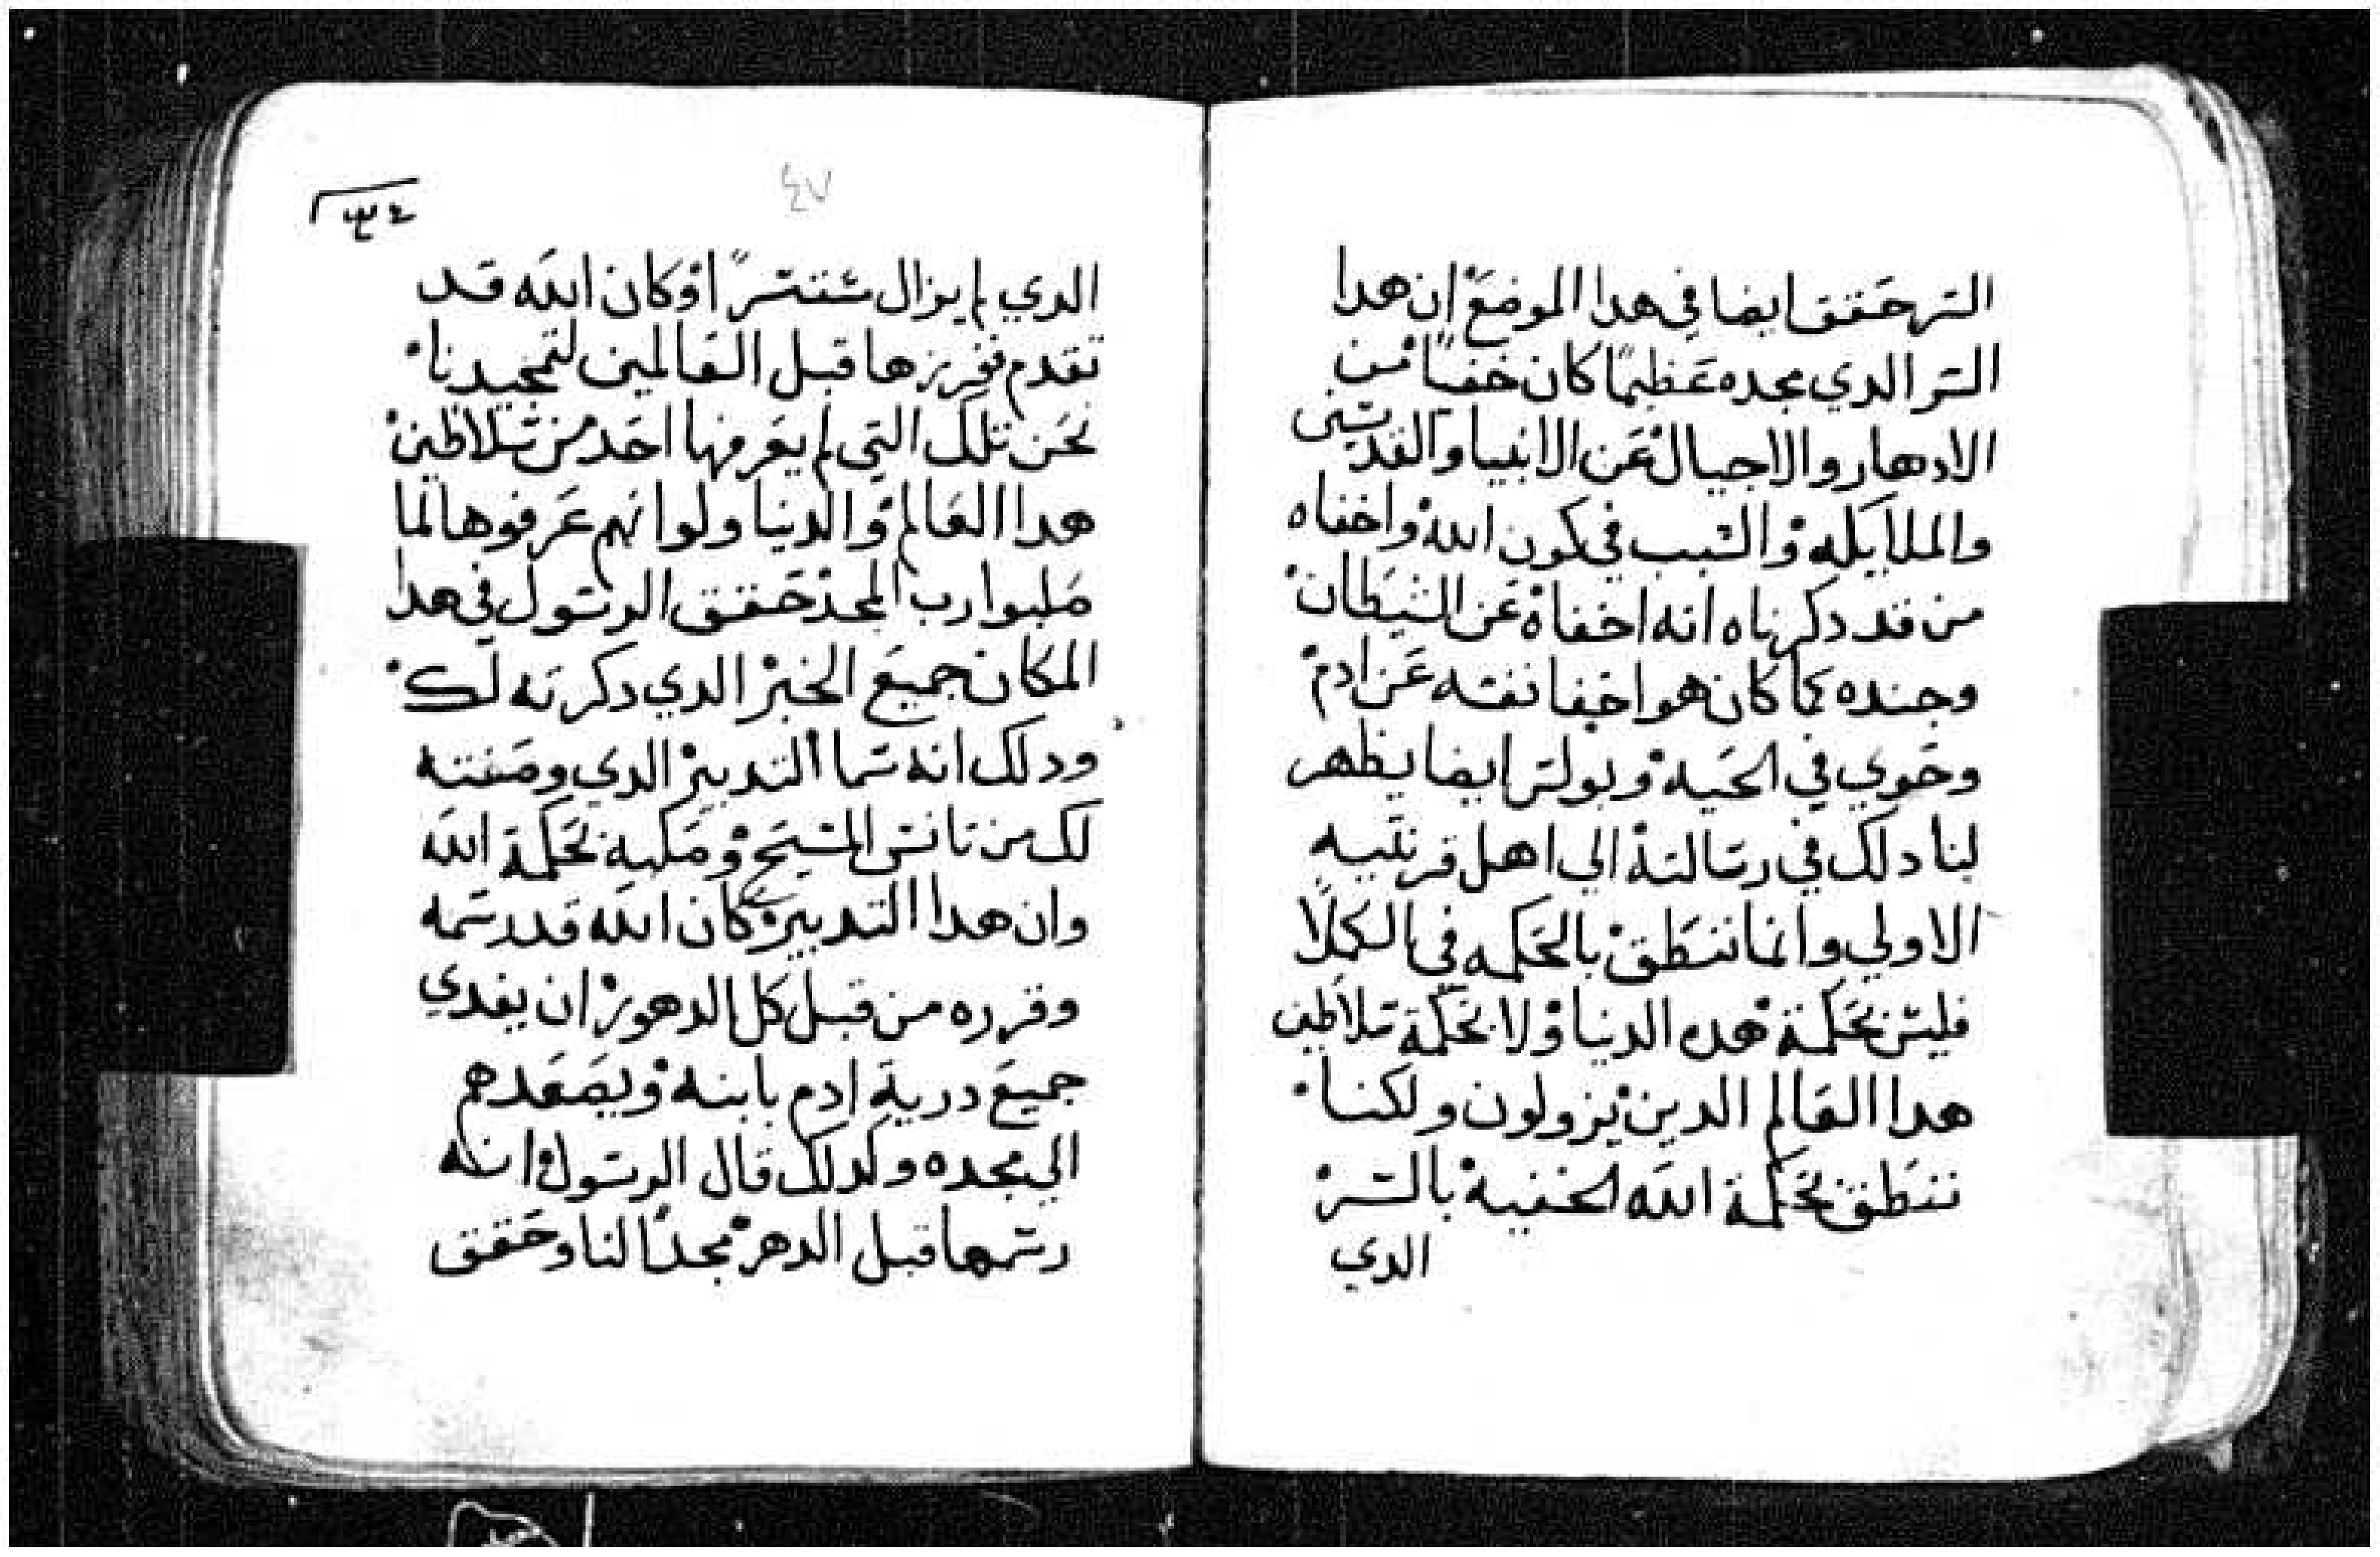 السر حقق ايضا في هدا الموضع ان هدا
السر الدي مجده عظيمًا كان خفيًا من
الادهار والاجيال عن الانبيا والقديسين
والملايكه والسبب في كون الله واخفاه
من قد دكرناه انه اخفاه عن الشيطان
وجنده كما كان هو اخفا نفسه عن ادم
وحوي في الحيه وبولس ايضا يظهر
لنا دلك في رسالته الي اهل قرنتيه
الاولي وانما ننطق بالحكمه في الكملا
فليس بحكمة هده الدنيا ولا بحكمة سلاطين
هدا العالم الدين يزولون ولكننا
ننطق بحكمة الله الخفيه بالسر
الدي
٤٧
الدي لم يزال مستترًا وكان الله قد
تقدم ففرزها قبل العالمين لتمجيدنا
نحن تلك التي لم يعرفها احد من سلاطين
هدا العالم والدنيا ولو انهم عرفوها لما
صلبوا رب المجد حقق الرسول في هدا
المكان جميع الخبر الدي دكرته لك
ودلك انه سما التدبير الدي وصفته
لك من تانس المسيح وصلبه بحكمة الله
وان هدا التدبير كان الله قد رسمه
وقرره من قبل كل الدهور ان يفدي
جميع درية ادم بابنه ويصعدهم
الي مجده وكدلك قال الرسول انه
رسمها قبل الدهر مجدًا لنا وحقق